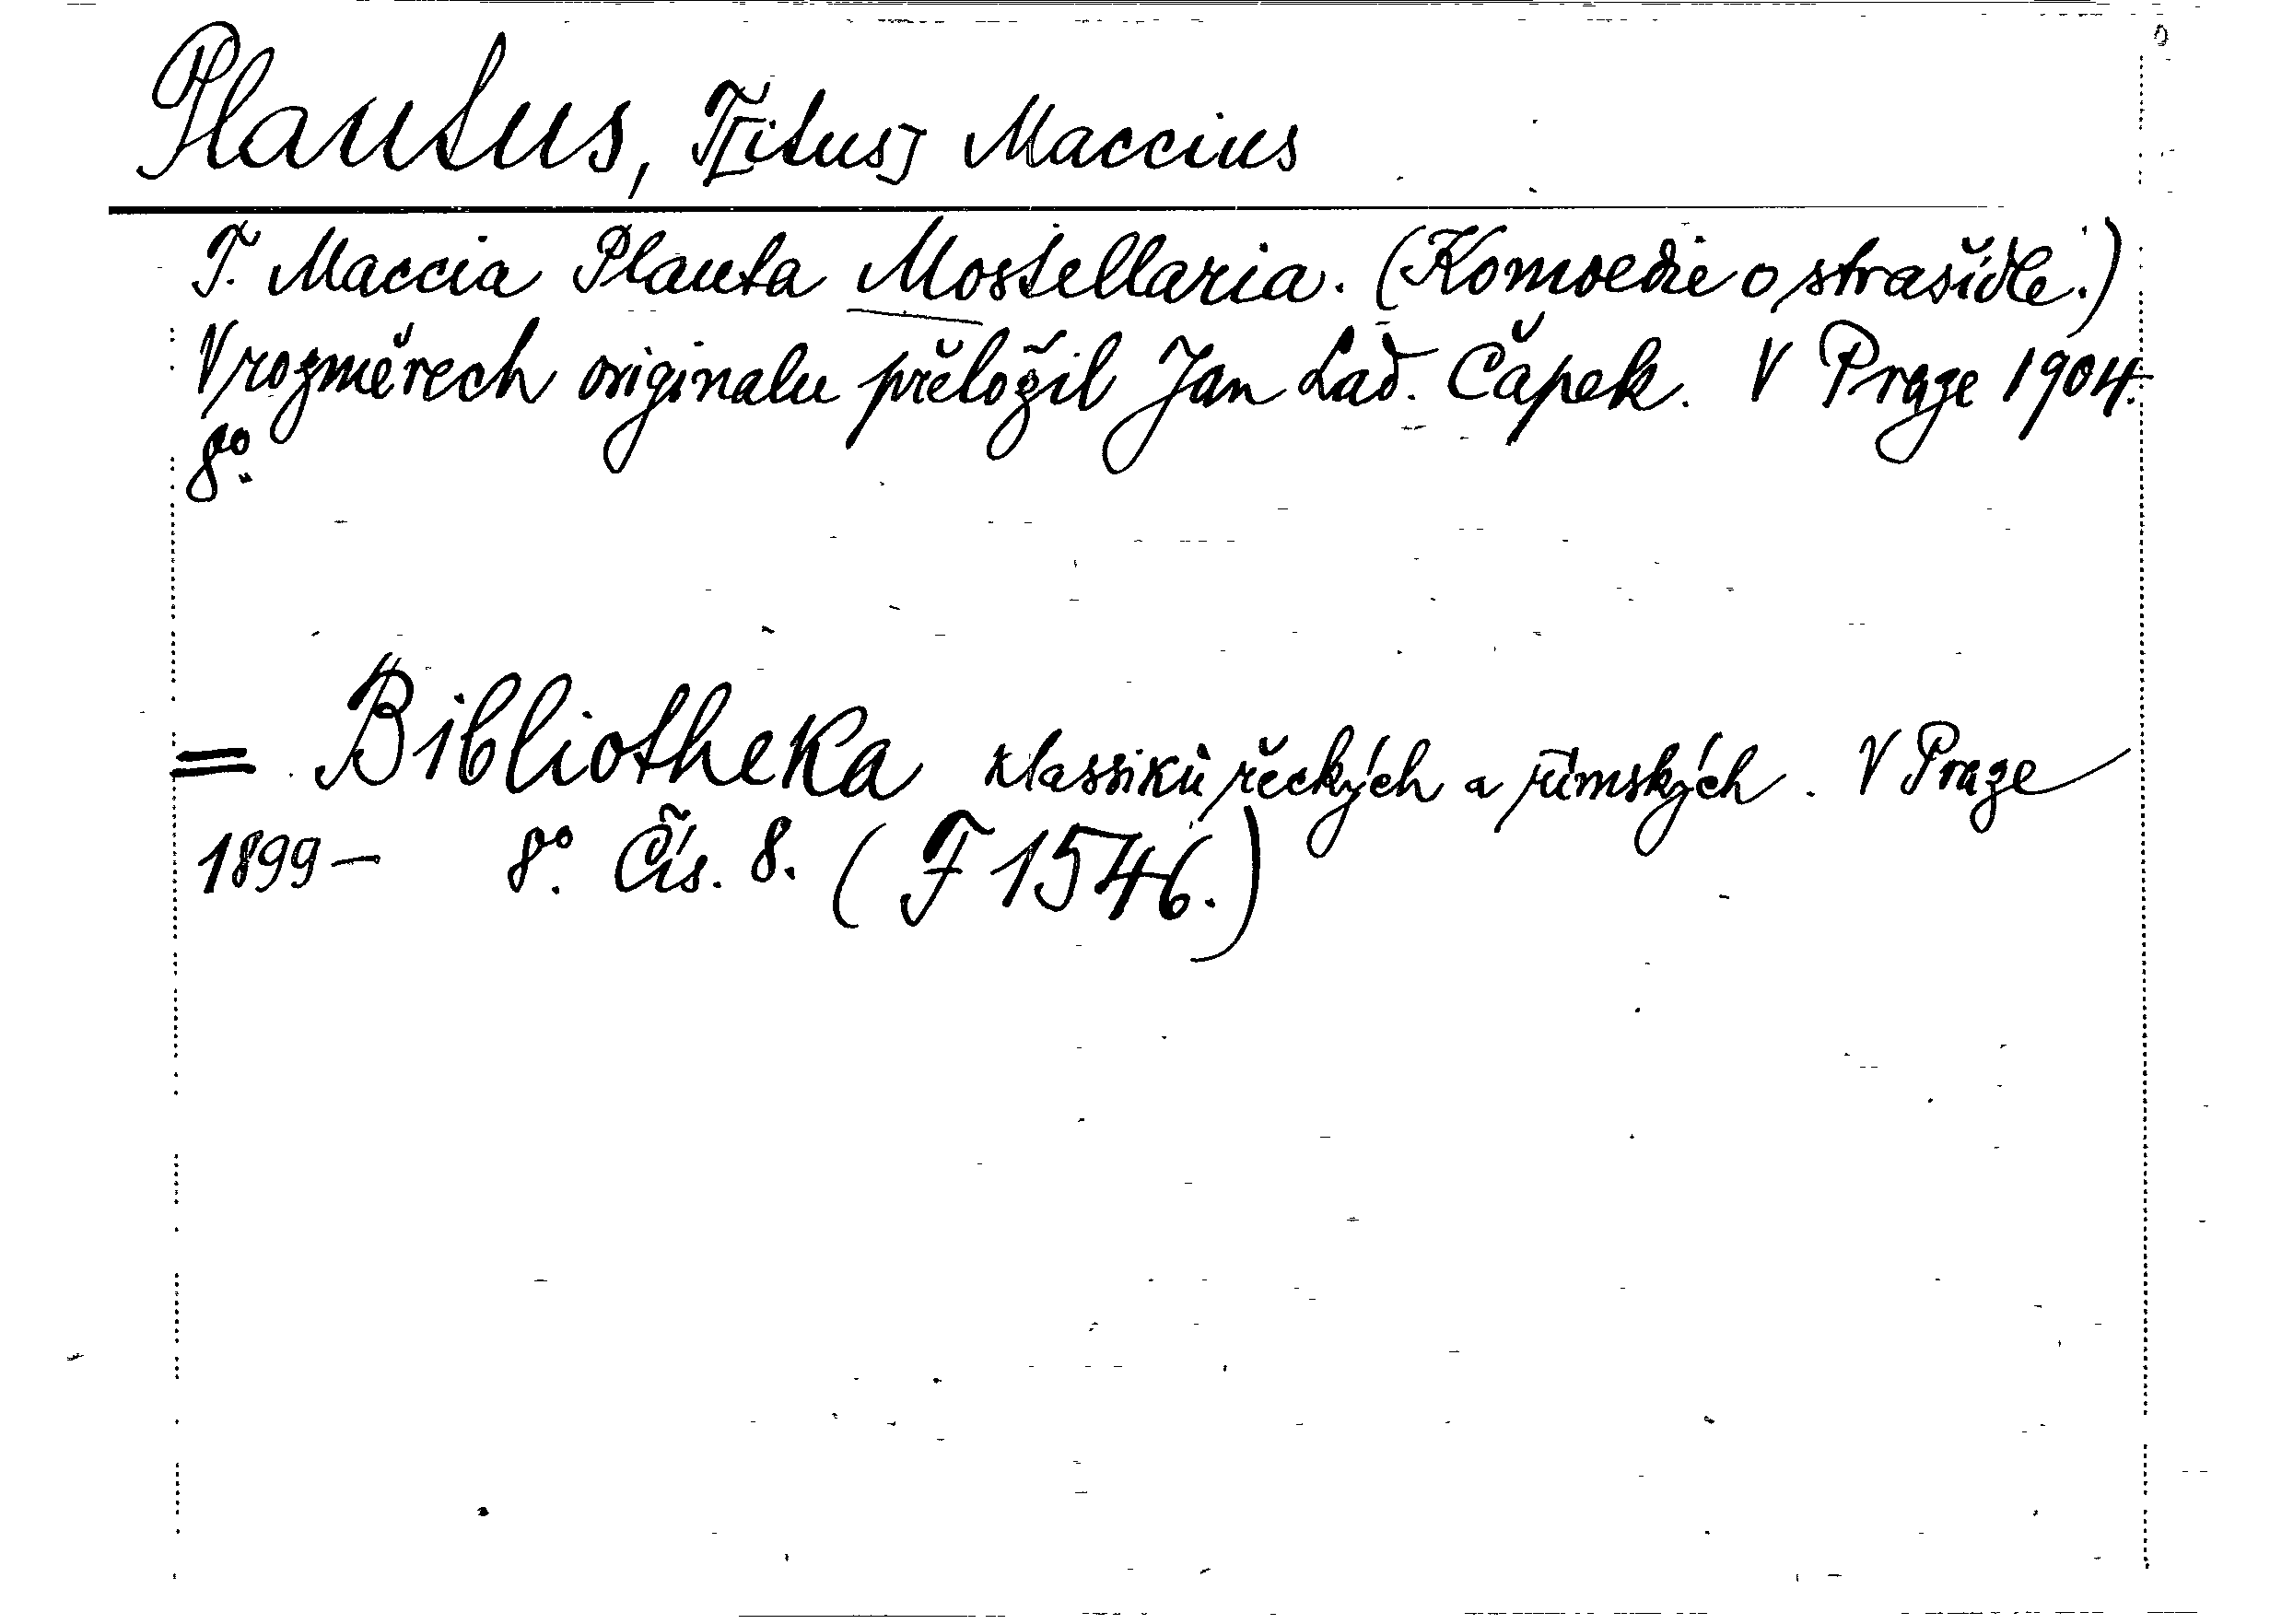 Plautus, T[itus] Maccius
T. Maccia Plauta Mostellaria. (Komoedie o strašidle.)
V rozměrech originalu přeložil Jan Lad. Čapek. V Praze 1904.
8°.
= Bibliotheka klassiků řeckých a římských. V Praze
1899— 8°. Čís. 8. (F 1546.)